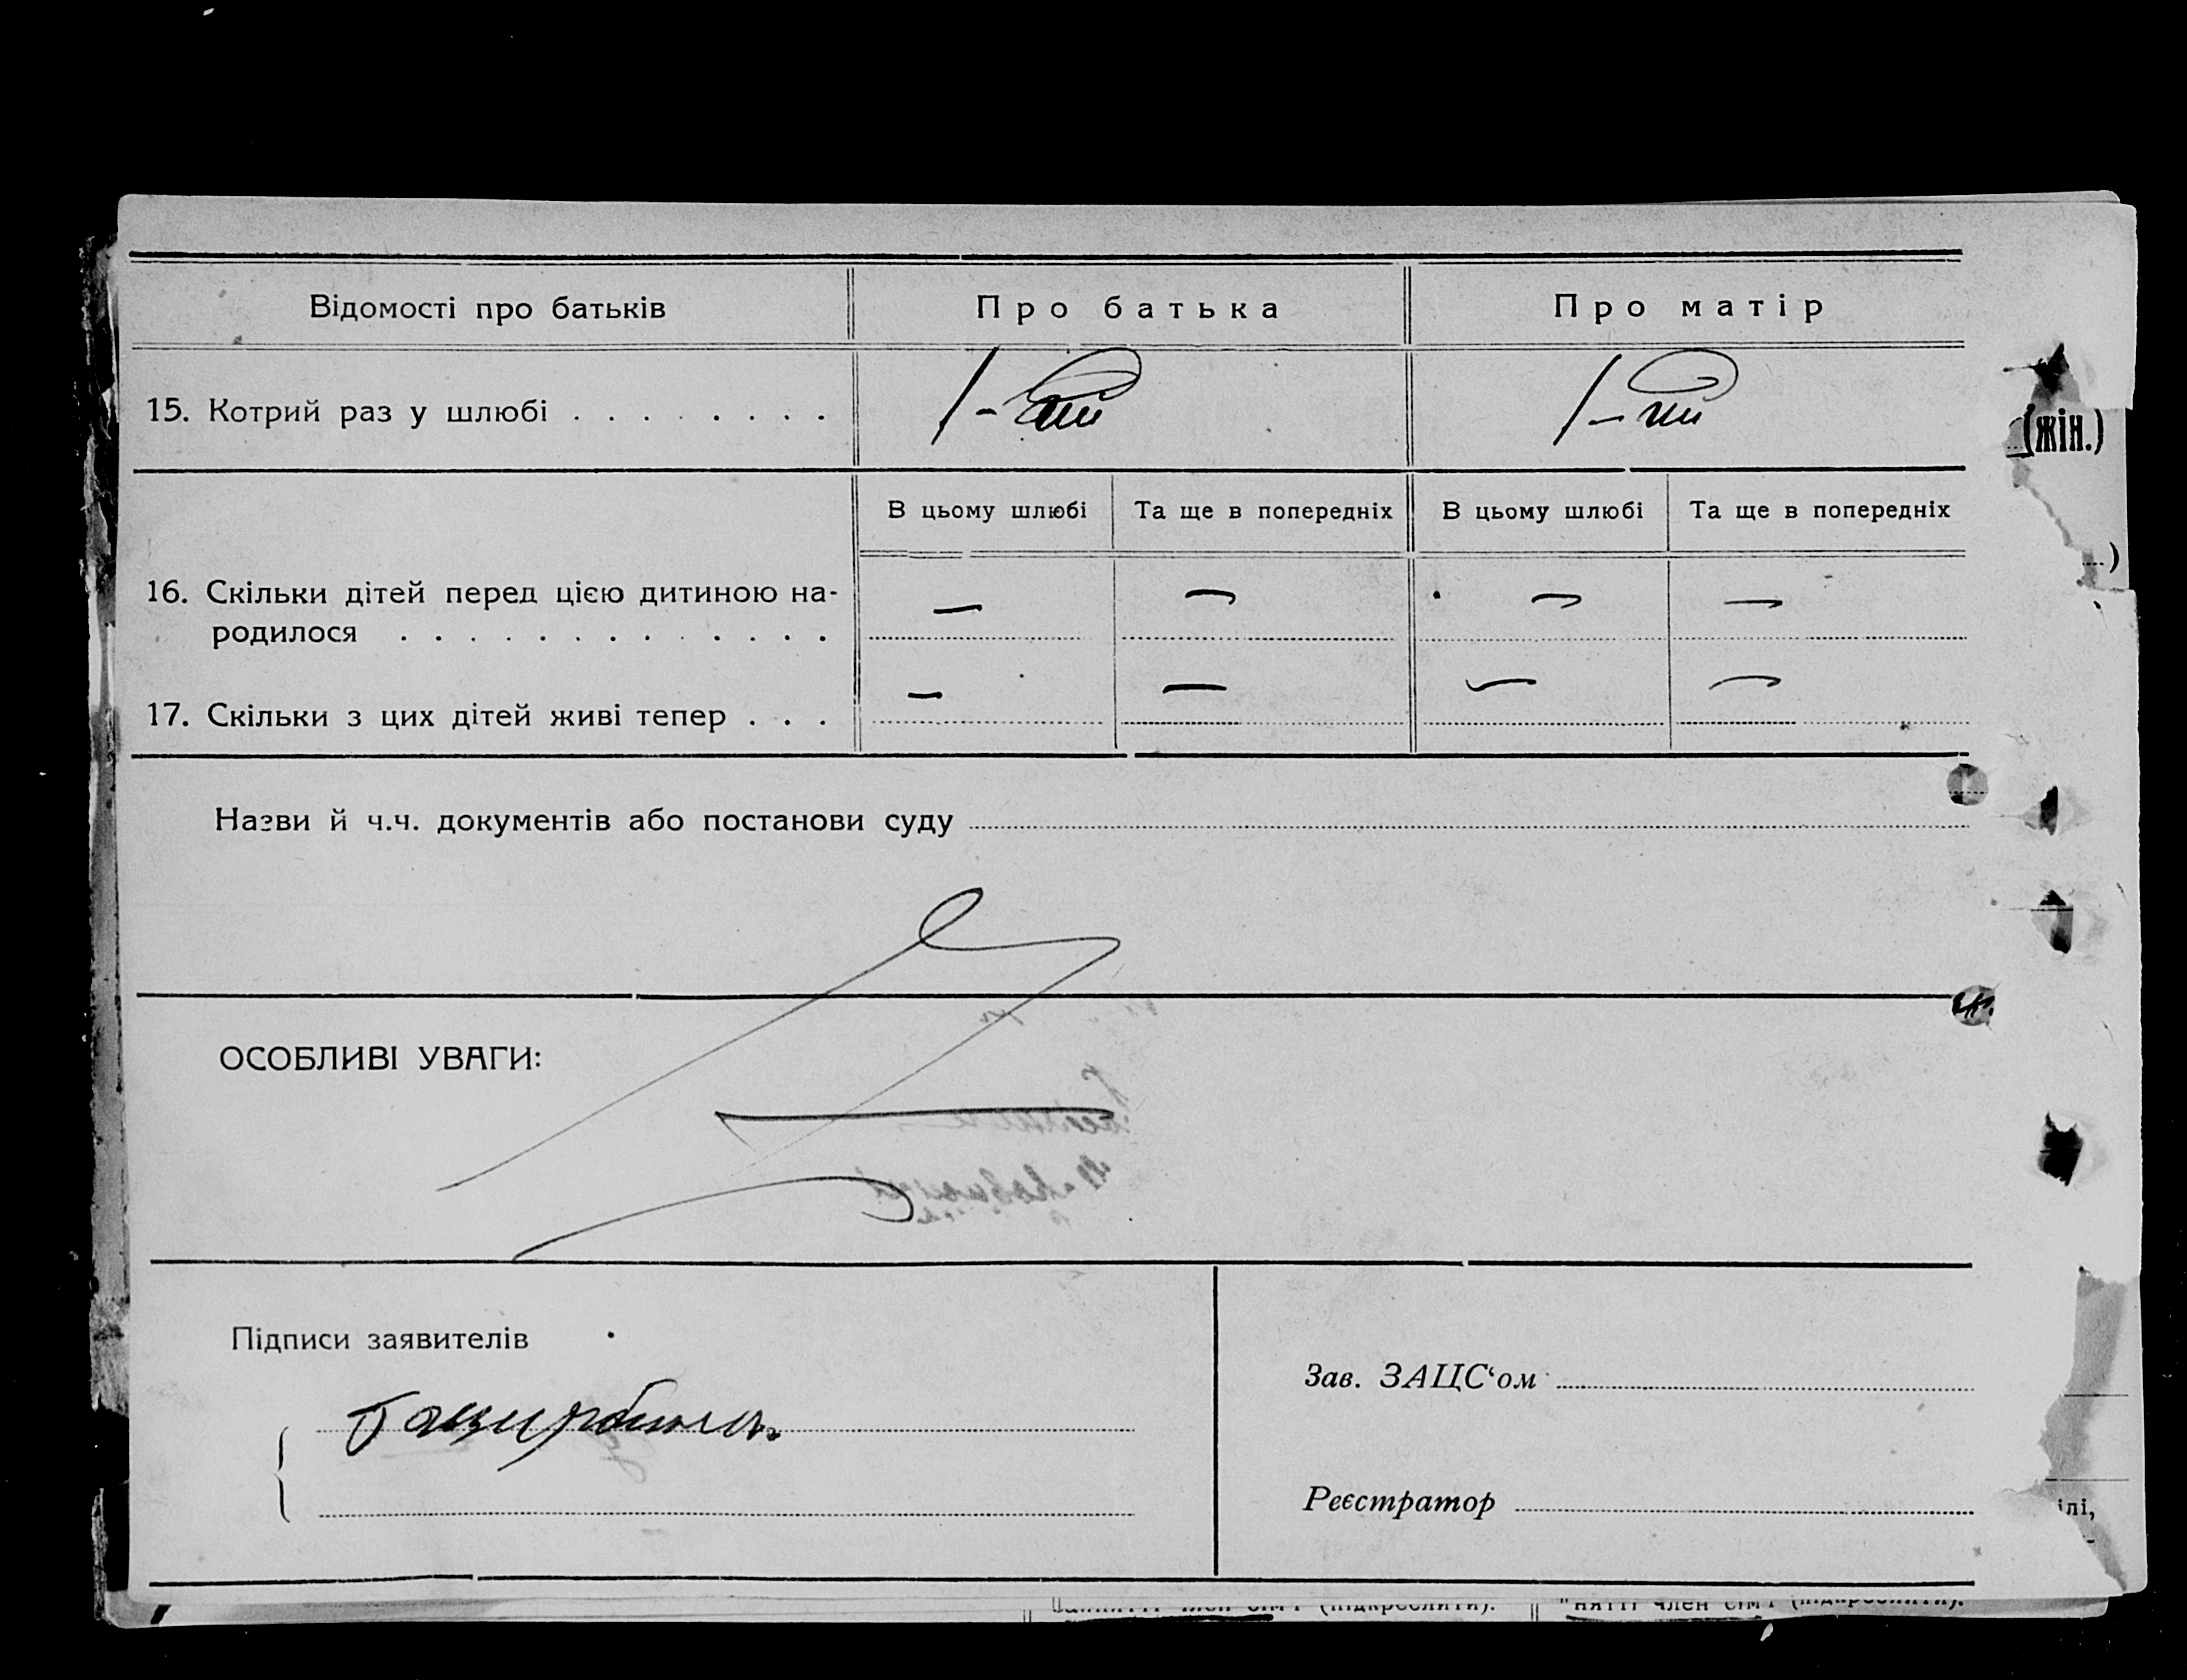 Відомості про батьків
Про батька
Про матір
15. Котрий раз у шлюбі . . . . . . . .
1-ий
1-ий
(жін.)
В цьому шлюбі
Та ще в попередніх
В цьому шлюбі
Та ще в попередніх
16. Скільки дітей перед цією дитиною на-
родилося . . . . . . . . . . . . .
— — — —
17. Скільки з цих дітей живі тепер . . .
— — — —
Назви й ч.ч. документів або постанови суду
ОСОБЛИВІ УВАГИ:
Підписи заявителів
Зав. ЗАЦС‘ом
Реєстратор
ілі,
член сім'ї (підкреслити).
няття член сім'ї (підкреслити).